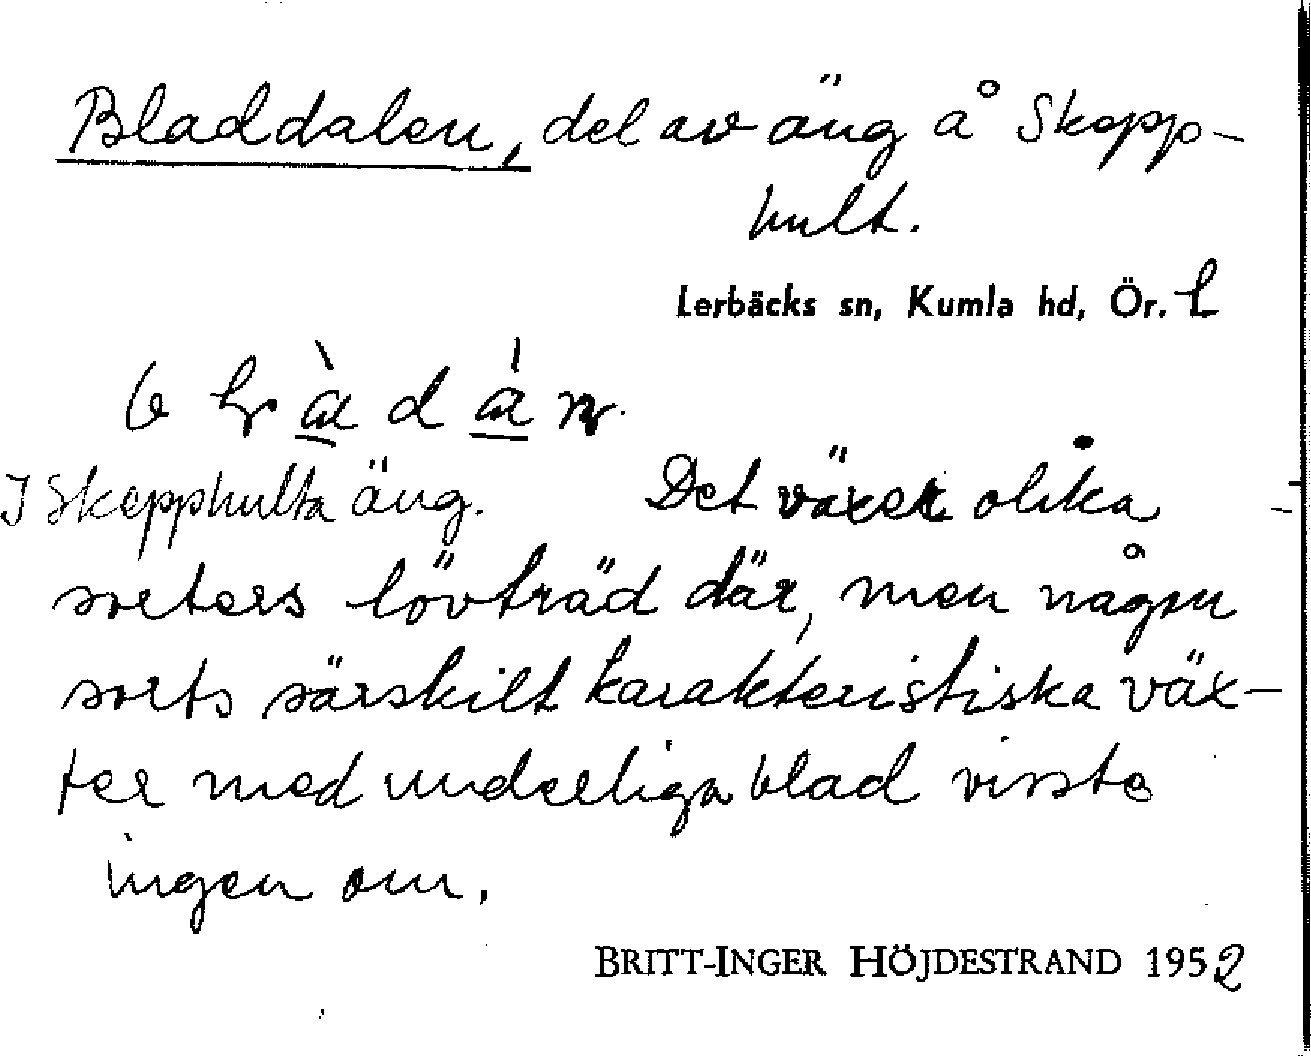 Bladdalen, del av äng å Skepp-
hult.
Lerbäcks sn, Kumla hd, Ör. L
I Skepphulta äng. Det växer olika
sorters lövträd där, men någon
sorts särskilt karakteristiska väx-
ter med underliga blad visste
ingen om.
BRITT-INGER HÖJDESTRAND 1952